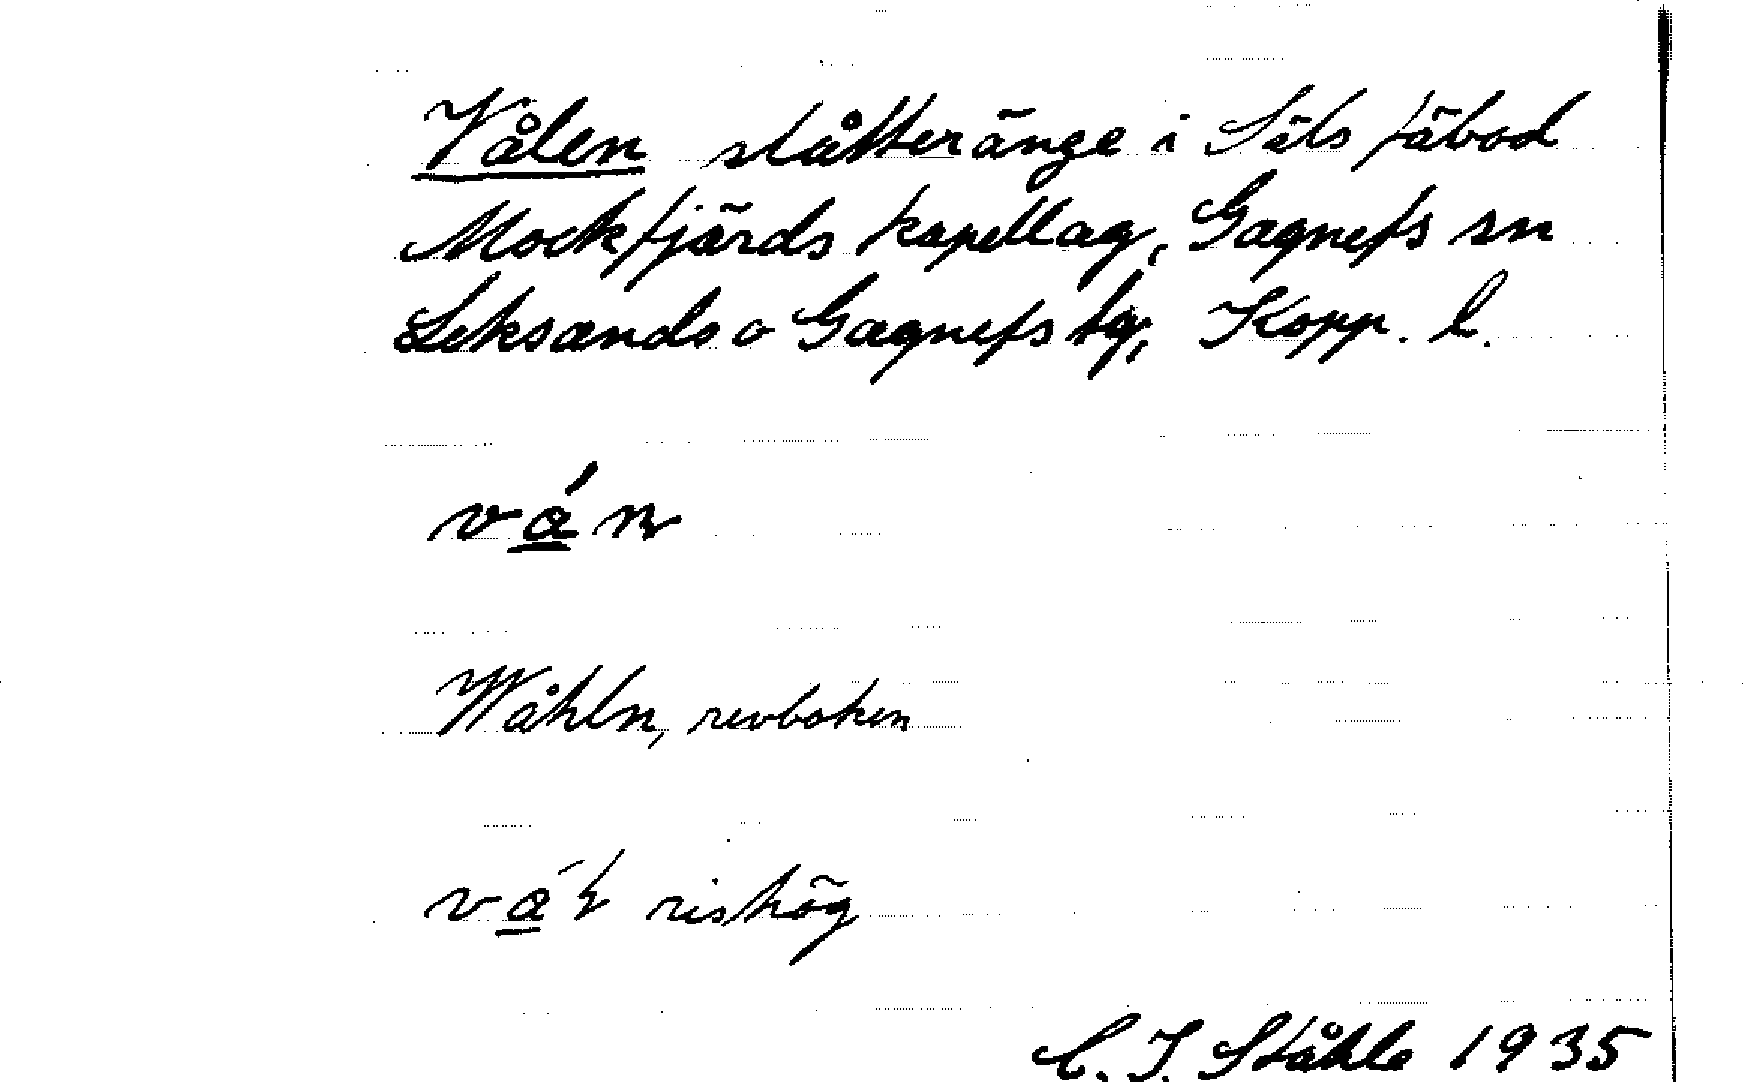 Vålen slåtteränge i Säls fäbod
Mockfjärds kapellag, Gagnefs sn
Leksands o Gagnefs tg, Kopp. l.
ván
Wåhln, revboken
vá rishög
C. I. Ståhle 1935